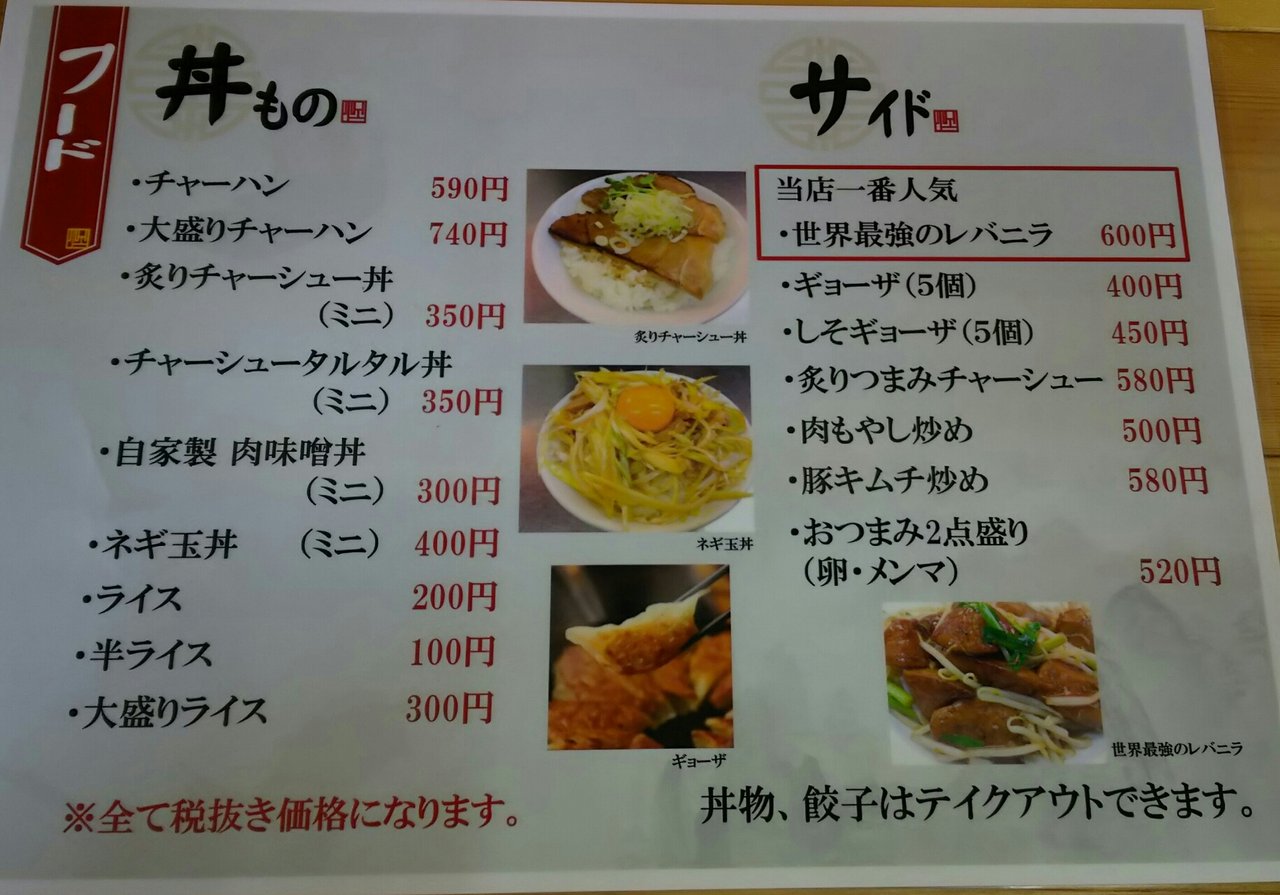 フード
丼もの
・チャーハン 590円
・大盛りチャーハン 740円
・炙りチャーシュー丼
（ミニ） 350円
・チャーシュータルタル丼
（ミニ） 350円
・自家製 肉味噌丼
（ミニ） 300円
・ネギ玉丼 （ミニ） 400円
・ライス 200円
・半ライス 100円
・大盛りライス 300円
炙りチャーシュー丼
ネギ玉丼
ギョーザ
サイド
当店一番人気
・世界最強のレバニラ 600円
・ギョーザ（5個） 400円
・しそギョーザ（5個） 450円
・炙りつまみチャーシュー 580円
・肉もやし炒め 500円
・豚キムチ炒め 580円
・おつまみ2点盛り
（卵・メンマ） 520円
世界最強のレバニラ
※全て税抜き価格になります。
丼物、餃子はテイクアウトできます。